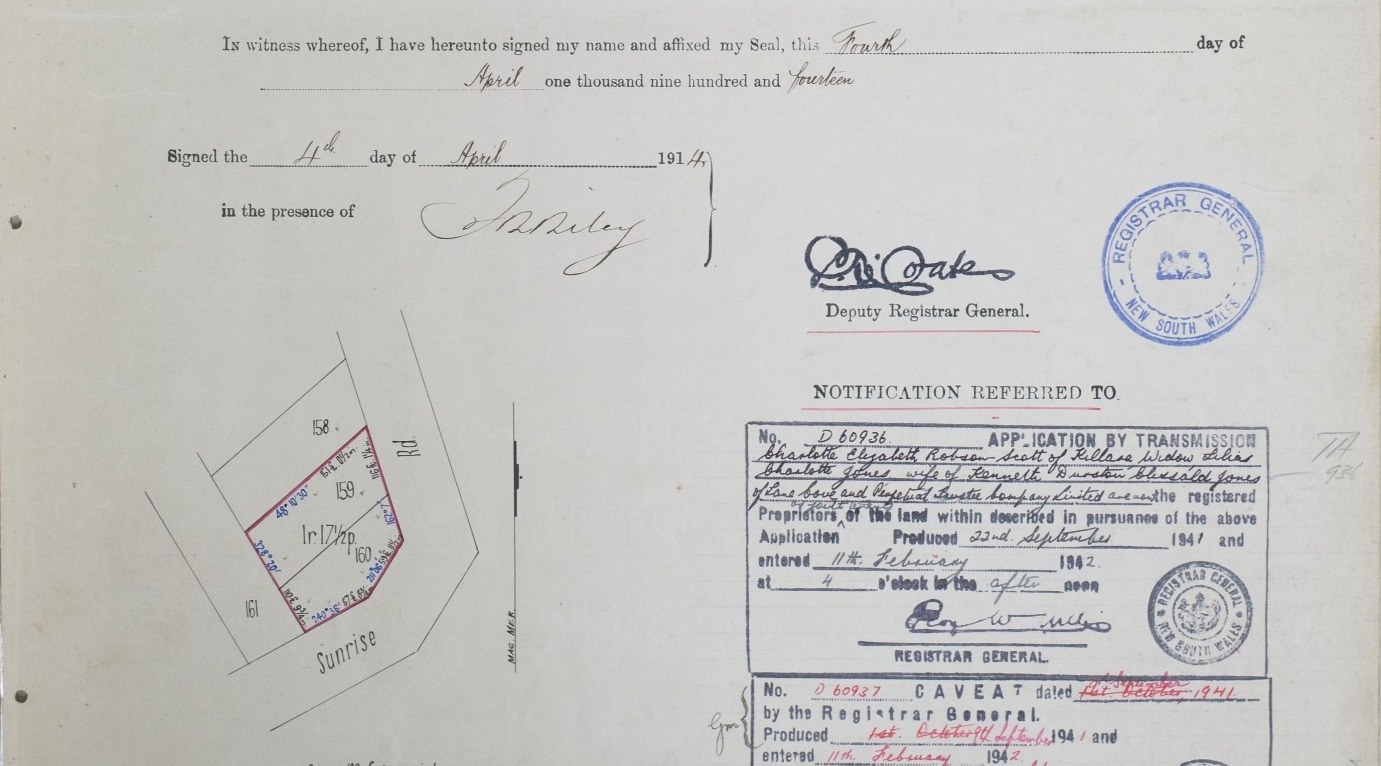 In witness whereof, I have hereunto signed my name and affixed my Seal, this Fourth day of
April one thousand nine hundred and fourteen
Signed the 4th day of April 1914
in the presence of
Deputy Registrar General.
REGISTRAR GENERAL
NEW SOUTH WALES
158
Rd
159
1r 17½p.
160
161
48° 10' 30"
328° 20'
240° 36'
Sunrise
MAG. MER.
NOTIFICATION REFERRED TO
No. D 60936 APPLICATION BY TRANSMISSION
Charlotte Elizabeth Robson-Scott of Killara Widow Lilias
Charlotte Jones wife of Kenneth Jones
of Lane Cove and Perpetual Trustee Company Limited are now the registered
Proprietors of the land within described in pursuance of the above
Application Produced 22nd. September 1941 and
entered 11th. February 1942.
at 4 o'clock in the after noon
REGISTRAR GENERAL.
REGISTRAR GENERAL
NEW SOUTH WALES
No. D 60937 CAVEAT dated 1st October September 1941.
by the Registrar General.
Produced 1st. October September 1941 and
entered 11th. February 1942.